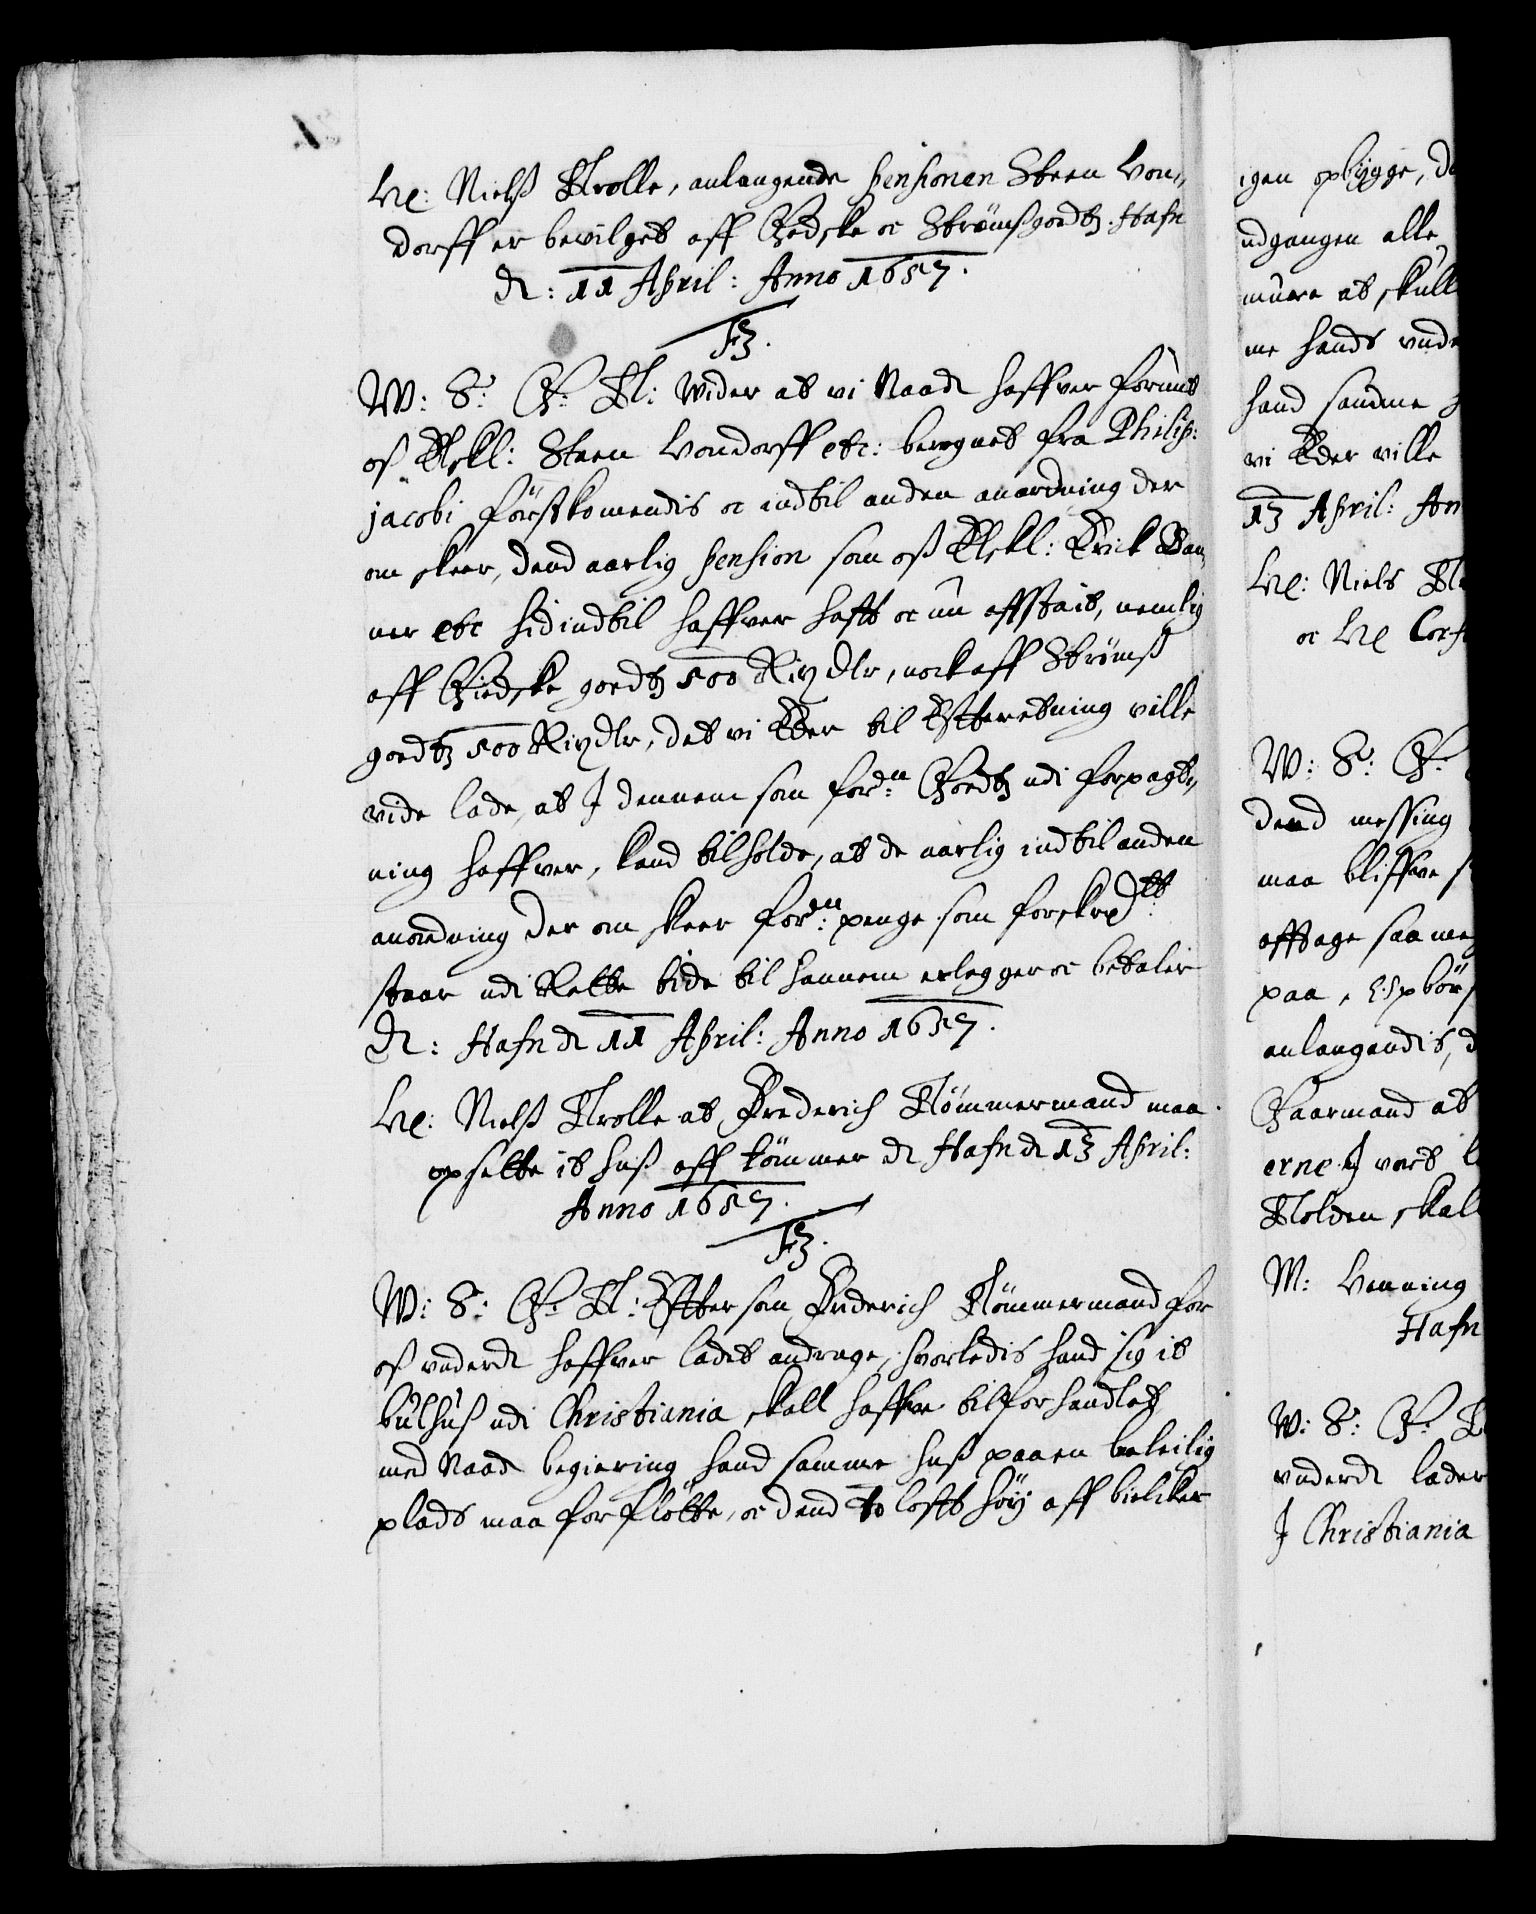 H: Nielß Trolle, anlangende pensionen Steen Von¬
dorff er bevilget aff Giedske oc Strømßgoedtz. Hafn
d: 11 April: Anno 1657.
F3.
W: S: G: T: Wider at vi Naadl haffver forundt
oß Elskl: Steen Vondorff etc: beregnet fra Philip:
jacobi förstkomendis oc indtil anden anordning der
om skeer, dend aarlig pension som oß Elskl: Erick Ban¬
ner etc hid indtil haffver hafft oc nu affstait, nemlig
aff Giedske goedtz 500 Rixdlr, nock aff Strømß
goedtz 500 Rixdlr, det vi Eder til Efterretning ville
vide lade, at I dennem som fordn: Goedtz udi forpagt¬
ning haffver, kand tilholde, at de aarlig indtil anden
anordning der om skeer fordn: penge som forskrefft:
staar udi Rette tide til hannem erlegger oc betaler
dl: Hafn dl 11 April: Anno 1657.
H: Nielß Trolle at Frederich Tömmermand maa
opsette it huß aff tömmer dl Hafn dl 13 April:
Anno 1657.
F3.
W: S: G: T: Efftersom Frederich Tömmermand for
oß underdl haffver ladet andrage, hvorledis hand sig it
bulhuß udi Christiania skall haffve tilforhandlet
med Naadl begiering hand samme huß paa en beleilig
plads maa forflötte, oc dend to loffts höy aff bielcker
igen opbygge, d
udgangen alle
muere at skull
me hands unde
hand samme
vi Eder ville
13 April: An
H: Niels T
oc H
W: S: G:
dend messing
maa bliffve
afftage saa me
paa,
anlangendis, d
Gaarmand at
erne I vort
Tolden skal
M: Henning
Hafn
W: S: G: T
underdl lader
I Christiania